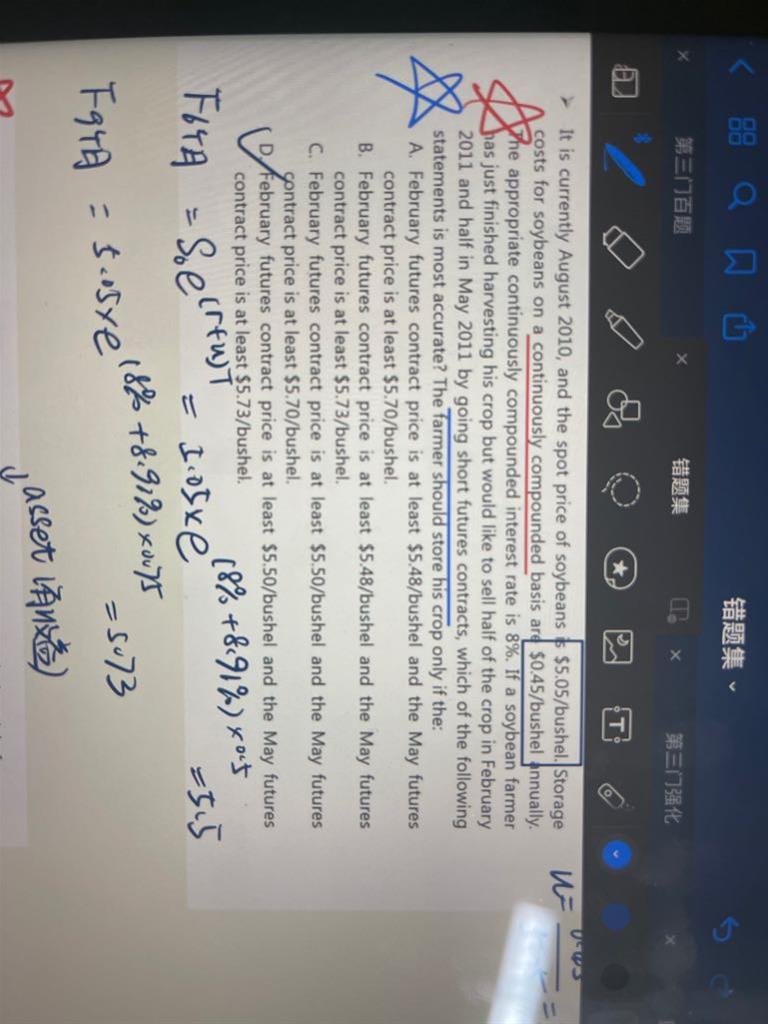 错题集
第三门百题
错题集
第三门强化
It is currently August 2010, and the spot price of soybeans is $5.05/bushel. Storage
costs for soybeans on a continuously compounded basis are $0.45/bushel annually.
The appropriate continuously compounded interest rate is 8%. If a soybean farmer
has just finished harvesting his crop but would like to sell half of the crop in February
2011 and half in May 2011 by going short futures contracts, which of the following
statements is most accurate? The farmer should store his crop only if the:
A. February futures contract price is at least $5.48/bushel and the May futures
contract price is at least $5.70/bushel.
B. February futures contract price is at least $5.48/bushel and the May futures
contract price is at least $5.73/bushel.
C. February futures contract price is at least $5.50/bushel and the May futures
contract price is at least $5.70/bushel.
D. February futures contract price is at least $5.50/bushel and the May futures
contract price is at least $5.73/bushel.
u=
F6个月 = S₀e^(r+u)T = 5.05×e^(8%+8.91%)×0.5 = 5.5
F9个月 = 5.05×e^(8%+8.91%)×0.75 = 5.73
asset